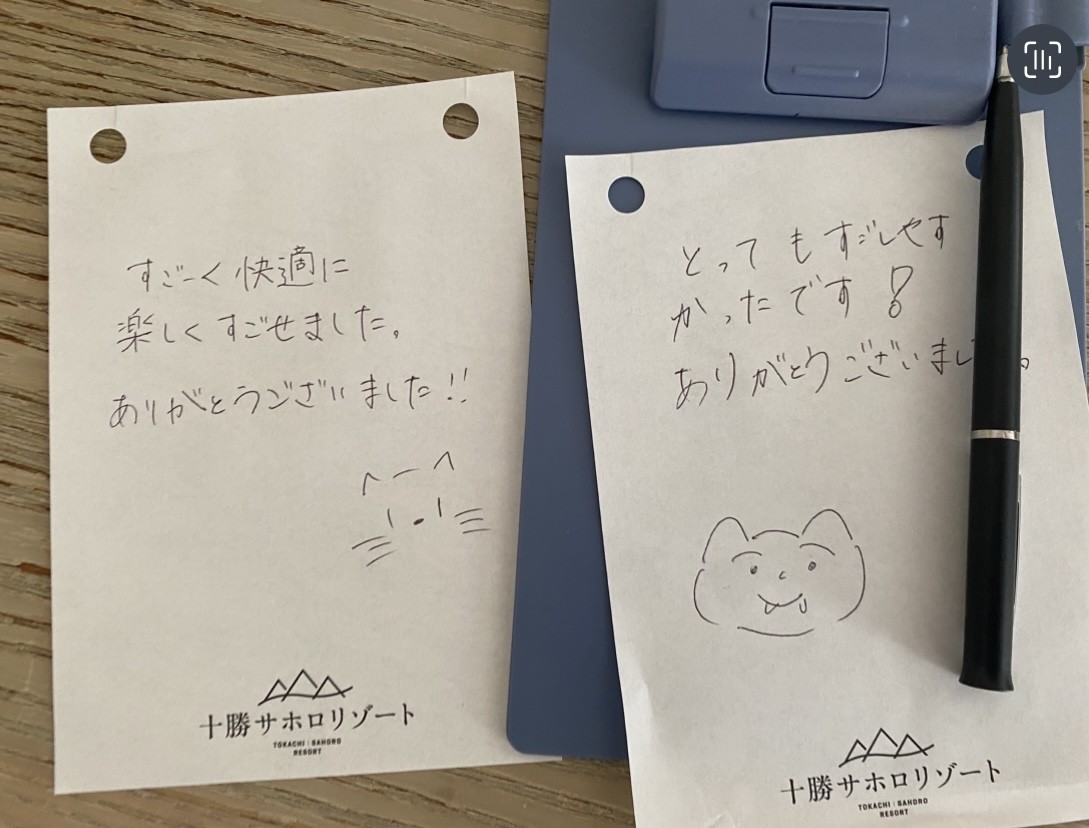 すごーく快適に
楽しくすごせました。
ありがとうございました!!
十勝サホロリゾート
TOKACHI SAHORO
RESORT
とってもすごしやす
かったです!
ありがとうございまし。
十勝サホロリゾート
TOKACHI SAHORO
RESORT